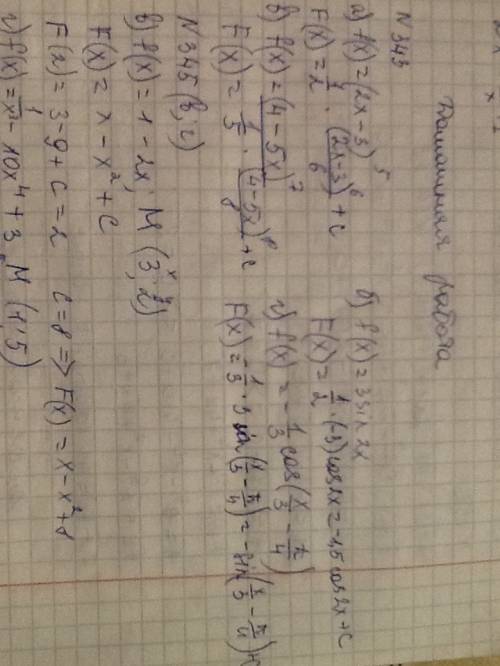 Домашняя работа
N 343
а) f(x) = (2x - 3)^5
F(x) = 1/2 · (2x-3)^6/6 + C
б) f(x) = 3 sin 2x
F(x) = 1/2 · (-3) cos 2x = -1,5 cos 2x + C
в) f(x) = (4 - 5x)^7
F(x) = 1/5 · (4-5x)^8/8 + C
г) f(x) = -1/3 cos(x/3 - π/4)
F(x) = 1/3 · 3 sin(x/3 - π/4) = -sin(x/3 - π/4) + C
N 345 (в; г)
в) f(x) = 1 - 2x; M (3; 2)
x y
F(x) = x - x² + C
F(x) = 3 - 9 + C = 2 C = 8 => F(x) = x - x² + 8
г) f(x) = 1/x² - 10x^4 + 3, M (1; 5)